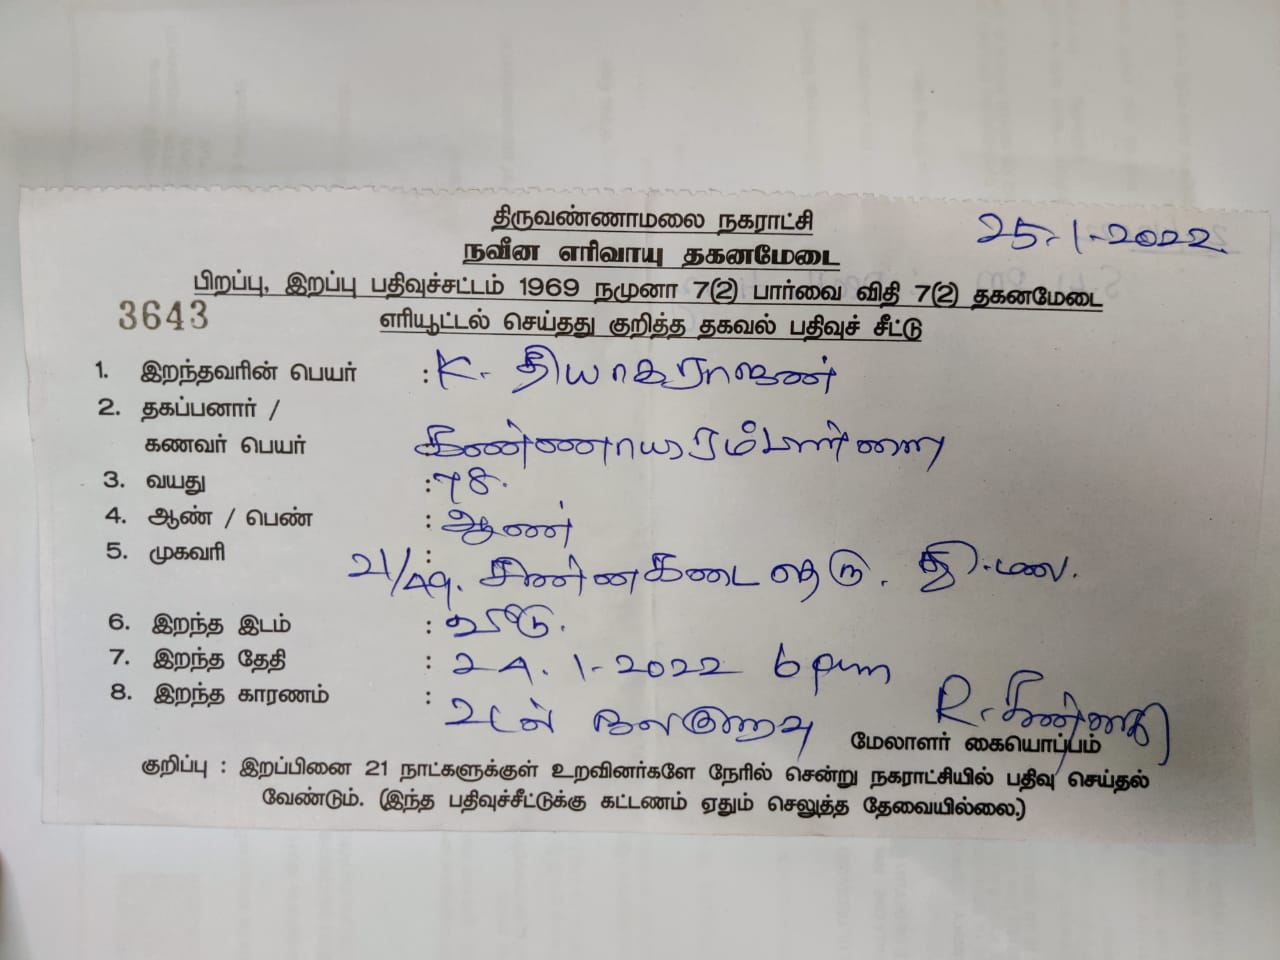 திருவண்ணாமலை நகராட்சி
25-1-2022
நவீன எரிவாயு தகனமேடை
பிறப்பு, இறப்பு பதிவுச்சட்டம் 1969 நமுனா 7(2) பார்வை விதி 7(2) தகனமேடை
3643 எரியூட்டல் செய்தது குறித்த தகவல் பதிவுச் சீட்டு
1. இறந்தவரின் பெயர் : K. தியாகராஜன்
2. தகப்பனார் /
கணவர் பெயர்
3. வயது : 78.
4. ஆண் / பெண் : ஆண்
5. முகவரி : 21/49. சின்னகடை தெரு. தி.மலை.
6. இறந்த இடம் : வீடு.
7. இறந்த தேதி : 24.1-2022 6 pm
8. இறந்த காரணம் : உடல் நலகுறைவு
மேலாளர் கையொப்பம்
குறிப்பு : இறப்பினை 21 நாட்களுக்குள் உறவினர்களே நேரில் சென்று நகராட்சியில் பதிவு செய்தல்
வேண்டும். (இந்த பதிவுச்சீட்டுக்கு கட்டணம் ஏதும் செலுத்த தேவையில்லை.)